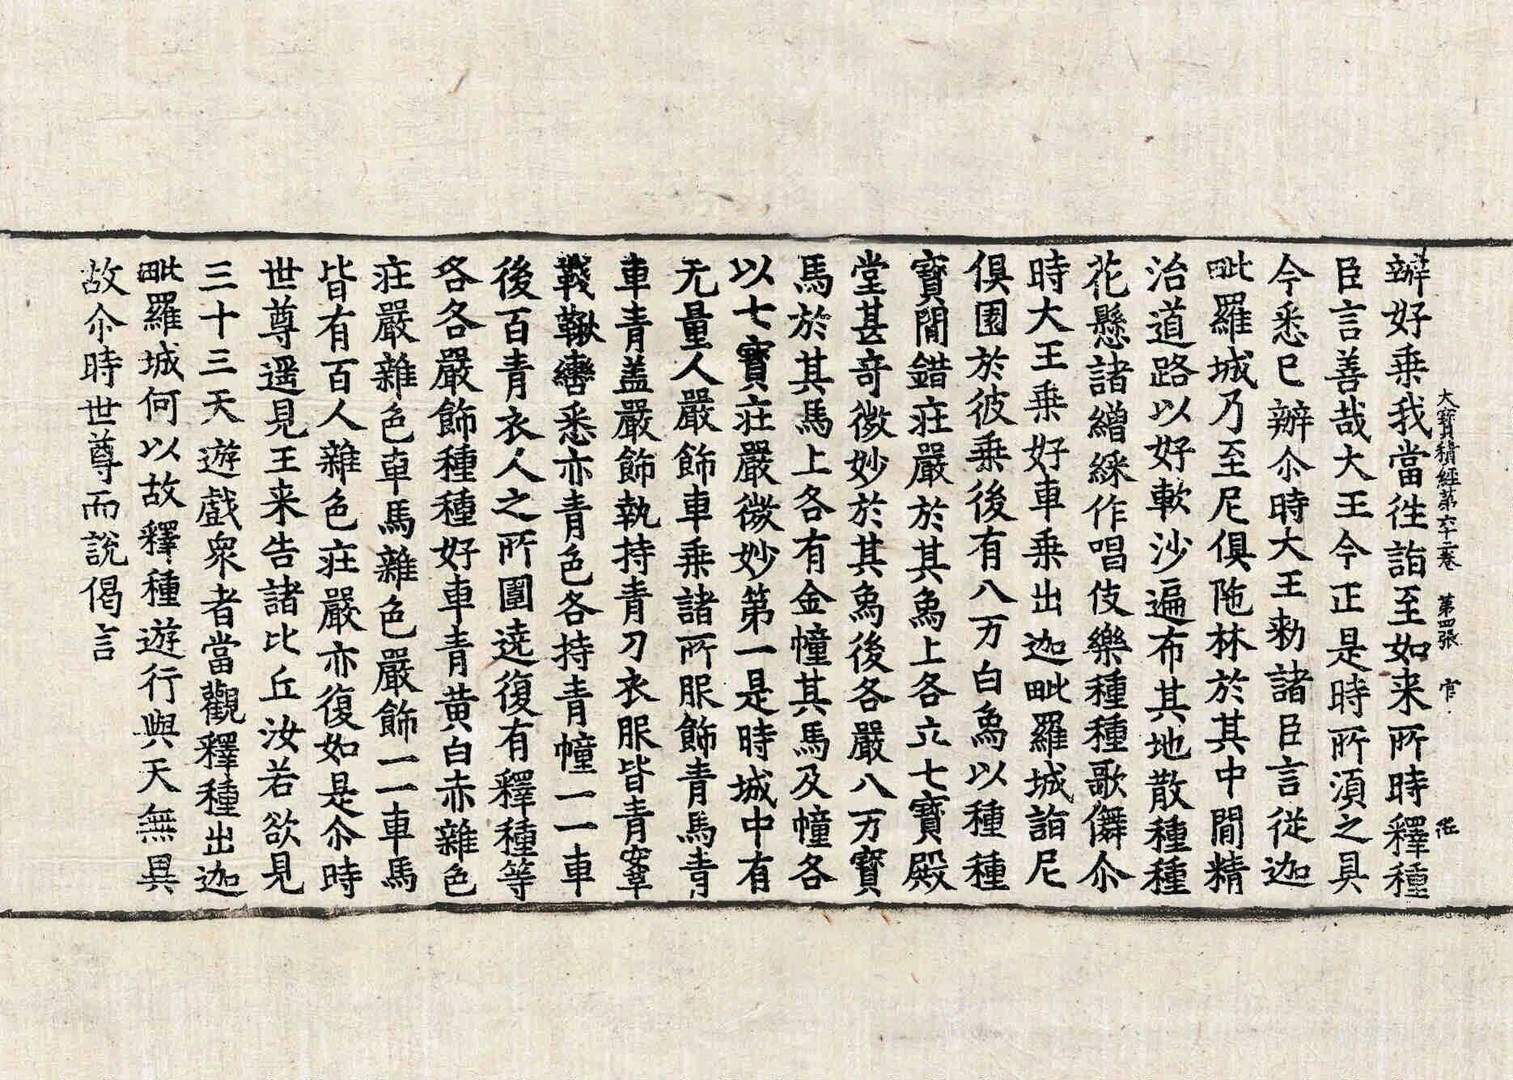 大寶積經第六十二卷　第四張　官
辦好乘我當徃詣至如来所時釋種
臣言善哉大王今正是時所湏之具
今悉已辦尒時大王勑諸臣言從迦
毗羅城乃至尼俱陁林於其中間精
治道路以好軟沙遍布其地散種種
花懸諸繒綵作唱伎樂種種歌儛尒
時大王乘好車乘出迦毗羅城詣尼
俱園於彼乘後有八万白象以種種
寶間錯莊嚴於其象上各立七寶殿
堂甚奇微妙於其象後各嚴八万寶
馬於其馬上各有金幢其馬及幢各
以七寶莊嚴微妙第一是時城中有
无量人嚴飾車乘諸所服飾青馬青
車青盖嚴飾執持青刀衣服皆青鞌
韀鞦轡悉亦青色各持青幢一一車
後百青衣人之所圍遶復有釋種等
各各嚴飾種種好車青黄白赤雜色
莊嚴雜色車馬雜色嚴飾一一車馬
皆有百人雜色莊嚴亦復如是尒時
世尊遥見王来告諸比丘汝若欲見
三十三天遊戲衆者當觀釋種出迦
毗羅城何以故釋種遊行與天無異
故尒時世尊而說偈言